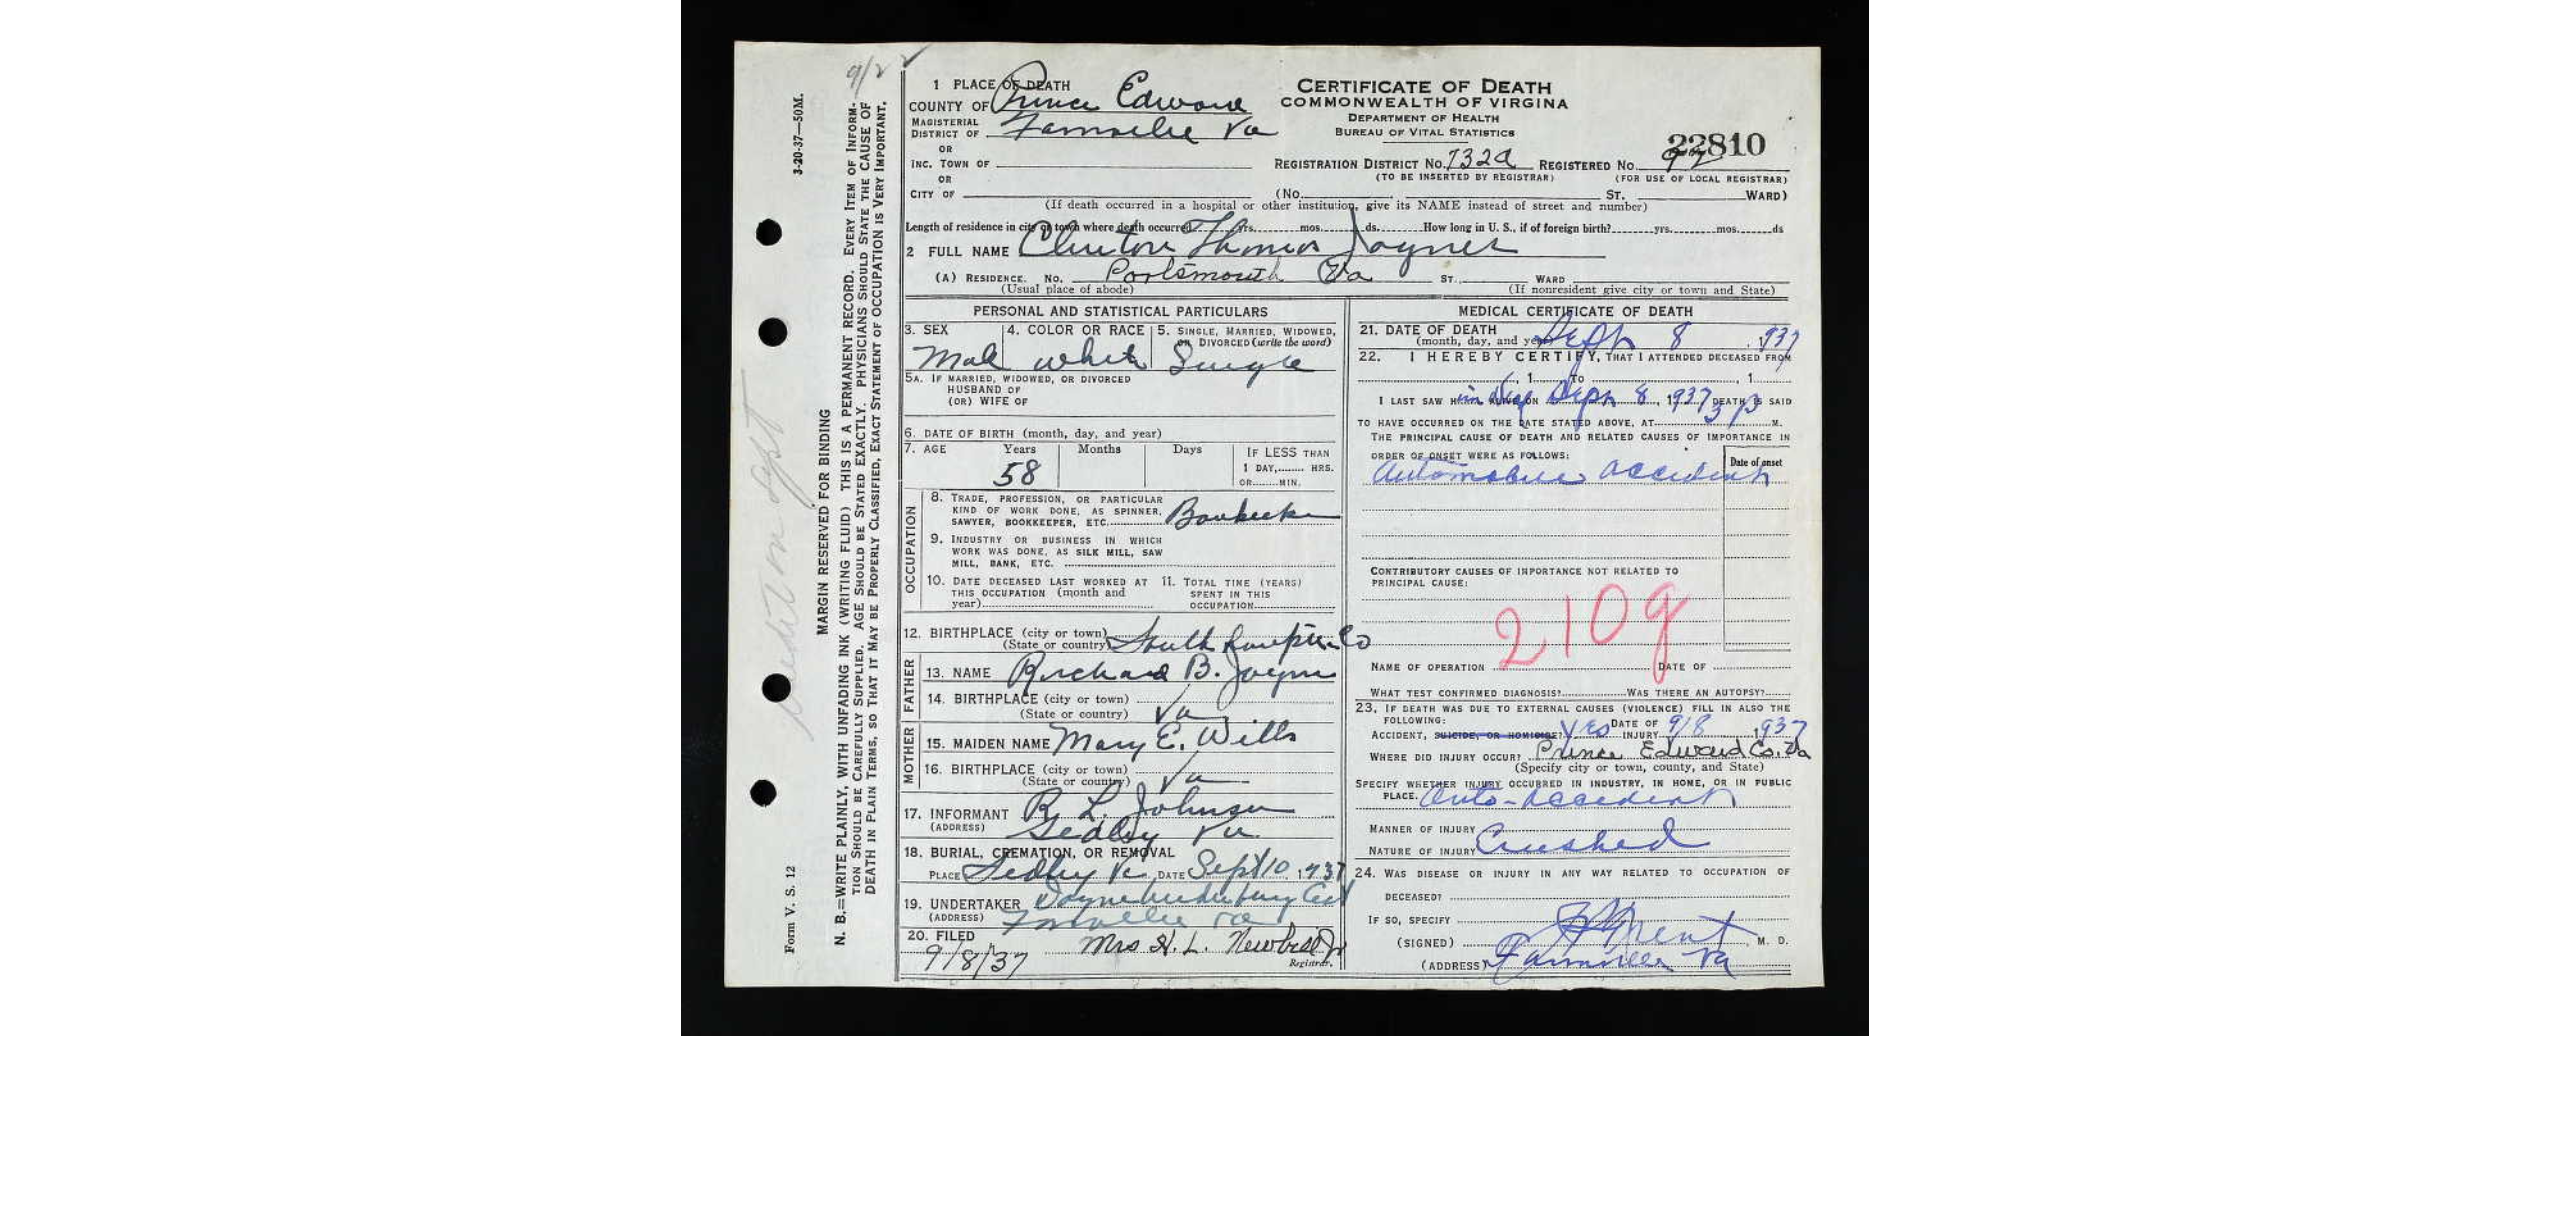 9/22
1 PLACE OF DEATH
COUNTY OF Prince Edward
MAGISTERIAL
DISTRICT OF Farmville Va
OR
INC. TOWN OF
OR
CITY OF
CERTIFICATE OF DEATH
COMMONWEALTH OF VIRGINA
DEPARTMENT OF HEALTH
BUREAU OF VITAL STATISTICS
22810
REGISTRATION DISTRICT No. 732a REGISTERED No. 92
(TO BE INSERTED BY REGISTRAR) (FOR USE OF LOCAL REGISTRAR)
(No. ST. WARD)
(If death occurred in a hospital or other institution, give its NAME instead of street and number)
Length of residence in city or town where death occurred yrs. mos. ds. How long in U. S., if of foreign birth? yrs. mos. ds
2 FULL NAME Clinton Thomas Joyner
(A) RESIDENCE. No. Portsmouth Va ST. WARD
(Usual place of abode) (If nonresident give city or town and State)
PERSONAL AND STATISTICAL PARTICULARS
3. SEX 4. COLOR OR RACE 5. SINGLE, MARRIED, WIDOWED,
OR DIVORCED (write the word)
Mal white Single
5A. IF MARRIED, WIDOWED, OR DIVORCED
HUSBAND OF
(OR) WIFE OF
6. DATE OF BIRTH (month, day, and year)
7. AGE Years Months Days IF LESS THAN
58 1 DAY, HRS.
OR MIN.
OCCUPATION
8. TRADE, PROFESSION, OR PARTICULAR
KIND OF WORK DONE, AS SPINNER,
SAWYER, BOOKKEEPER, ETC.
9. INDUSTRY OR BUSINESS IN WHICH
WORK WAS DONE, AS SILK MILL, SAW
MILL, BANK, ETC.
10. DATE DECEASED LAST WORKED AT 11. TOTAL TIME (YEARS)
THIS OCCUPATION (month and SPENT IN THIS
year) OCCUPATION
12. BIRTHPLACE (city or town)
(State or country) Southampton Co
FATHER
13. NAME Richard B. Joyner
14. BIRTHPLACE (city or town)
(State or country) Va
MOTHER
15. MAIDEN NAME Mary E. Wills
16. BIRTHPLACE (city or town)
(State or country) Va
17. INFORMANT R. L. Johnson
(ADDRESS) Sedley Va.
18. BURIAL, CREMATION, OR REMOVAL
PLACE Sedley Va DATE Sept 10, 1937
19. UNDERTAKER
(ADDRESS) Farmville Va
20. FILED
9/8/37 Mrs H. L. Newbill Jr
Registrar.
MEDICAL CERTIFICATE OF DEATH
21. DATE OF DEATH
(month, day, and year) Sept 8, 1937
22. I HEREBY CERTIFY, THAT I ATTENDED DECEASED FROM
, 1 To , 1
I LAST SAW H ALIVE ON Sept 8, 1937, DEATH IS SAID
TO HAVE OCCURRED ON THE DATE STATED ABOVE, AT 3 P M.
THE PRINCIPAL CAUSE OF DEATH AND RELATED CAUSES OF IMPORTANCE IN
ORDER OF ONSET WERE AS FOLLOWS: Date of onset
Automobile accident
CONTRIBUTORY CAUSES OF IMPORTANCE NOT RELATED TO
PRINCIPAL CAUSE:
210g
NAME OF OPERATION DATE OF
WHAT TEST CONFIRMED DIAGNOSIS? WAS THERE AN AUTOPSY?
23. IF DEATH WAS DUE TO EXTERNAL CAUSES (VIOLENCE) FILL IN ALSO THE
FOLLOWING:
ACCIDENT, SUICIDE, OR HOMICIDE? Yes DATE OF INJURY 9/8 1937
WHERE DID INJURY OCCUR? Prince Edward Co. Va
(Specify city or town, county, and State)
SPECIFY WHETHER INJURY OCCURRED IN INDUSTRY, IN HOME, OR IN PUBLIC
PLACE. Auto-accident
MANNER OF INJURY
NATURE OF INJURY Crushed
24. WAS DISEASE OR INJURY IN ANY WAY RELATED TO OCCUPATION OF
DECEASED?
IF SO, SPECIFY
(SIGNED) , M. D.
(ADDRESS) Farmville Va
3-20-37—50M.
MARGIN RESERVED FOR BINDING
Form V. S. 12
N. B.=WRITE PLAINLY, WITH UNFADING INK (WRITING FLUID) THIS IS A PERMANENT RECORD. EVERY ITEM OF INFORM-
TION SHOULD BE CAREFULLY SUPPLIED. AGE SHOULD BE STATED EXACTLY. PHYSICIANS SHOULD STATE THE CAUSE OF
DEATH IN PLAIN TERMS, SO THAT IT MAY BE PROPERLY CLASSIFIED, EXACT STATEMENT OF OCCUPATION IS VERY IMPORTANT.